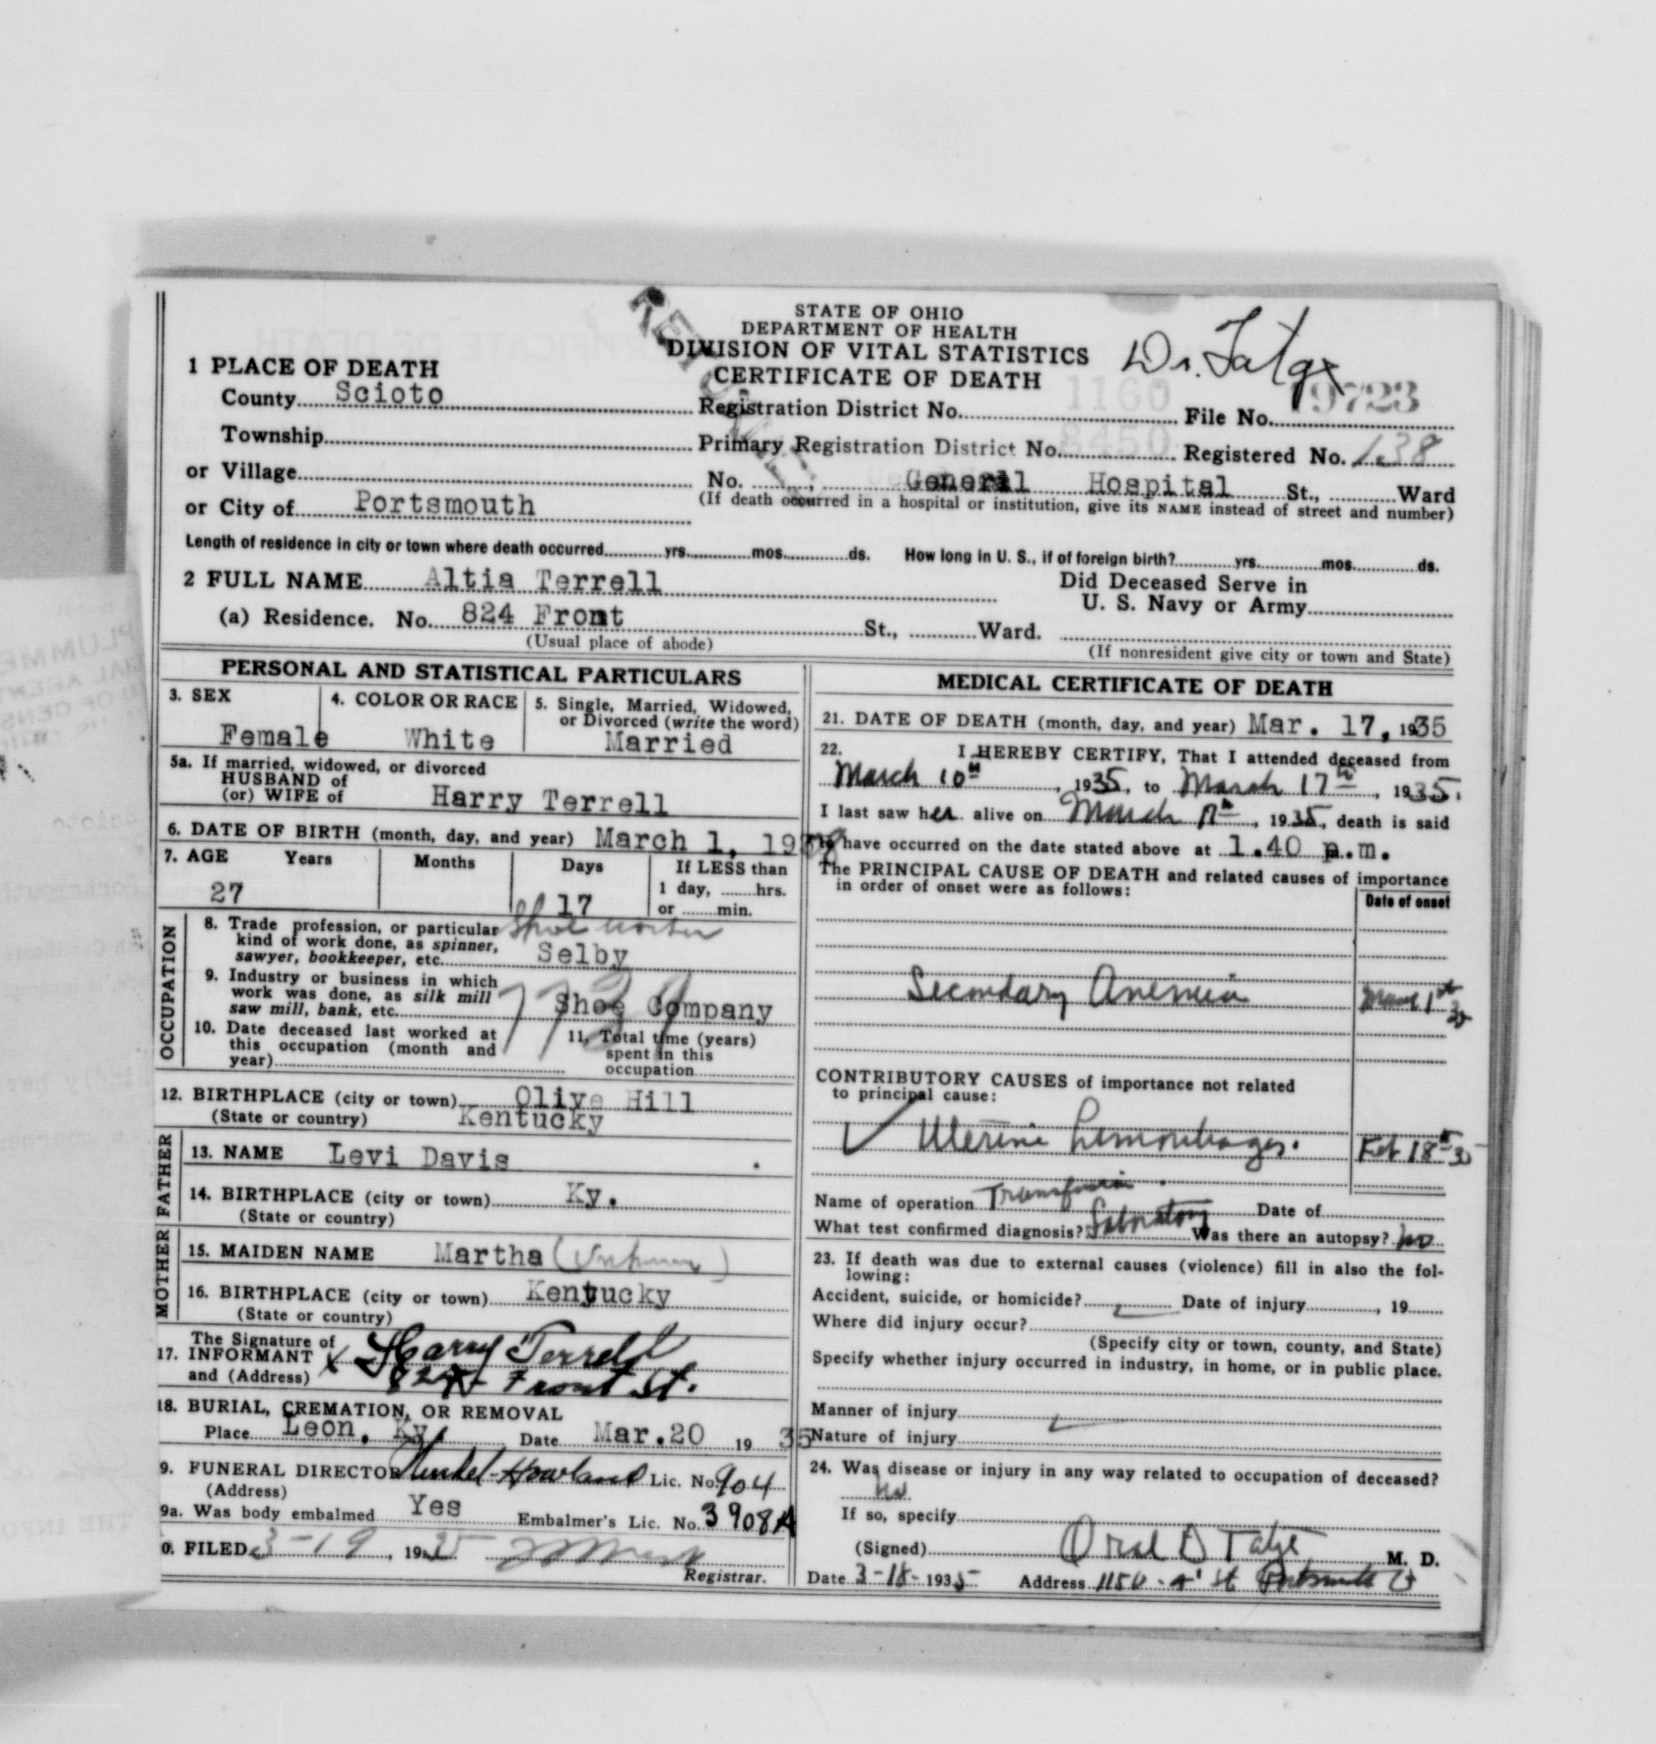 STATE OF OHIO
DEPARTMENT OF HEALTH
DIVISION OF VITAL STATISTICS
CERTIFICATE OF DEATH
RETURNED
1 PLACE OF DEATH
County Scioto
Registration District No. 1160 File No. 19723
Township
Primary Registration District No. 8450 Registered No. 138
or Village
No. General Hospital St., Ward
(If death occurred in a hospital or institution, give its NAME instead of street and number)
or City of Portsmouth
Length of residence in city or town where death occurred yrs. mos. ds. How long in U. S., if of foreign birth? yrs. mos. ds.
2 FULL NAME Altia Terrell
Did Deceased Serve in
U. S. Navy or Army
(a) Residence. No. 824 Front St., Ward.
(Usual place of abode) (If nonresident give city or town and State)
PERSONAL AND STATISTICAL PARTICULARS
3. SEX Female
4. COLOR OR RACE White
5. Single, Married, Widowed,
or Divorced (write the word)
Married
5a. If married, widowed, or divorced
HUSBAND of
(or) WIFE of Harry Terrell
6. DATE OF BIRTH (month, day, and year) March 1,
7. AGE Years Months Days If LESS than
1 day, hrs.
or min.
27 17
OCCUPATION
8. Trade profession, or particular
kind of work done, as spinner,
sawyer, bookkeeper, etc.
Shoe worker
Selby
9. Industry or business in which
work was done, as silk mill
saw mill, bank, etc.
Shoe Company
10. Date deceased last worked at
this occupation (month and
year)
11. Total time (years)
spent in this
occupation
12. BIRTHPLACE (city or town) Olive Hill
(State or country) Kentucky
FATHER
13. NAME Levi Davis
14. BIRTHPLACE (city or town) Ky.
(State or country)
MOTHER
15. MAIDEN NAME Martha (Unknown)
16. BIRTHPLACE (city or town) Kentucky
(State or country)
17. The Signature of
INFORMANT x Harry Terrell
and (Address) 824 Front St.
18. BURIAL, CREMATION, OR REMOVAL
Place Leon, Ky Date Mar.20 19 35
9. FUNERAL DIRECTOR Lic. No. 904
(Address)
9a. Was body embalmed Yes Embalmer's Lic. No. 3908A
0. FILED 3-19, 1935
Registrar.
MEDICAL CERTIFICATE OF DEATH
21. DATE OF DEATH (month, day, and year) Mar. 17, 1935
22. I HEREBY CERTIFY, That I attended deceased from
March 10th, 1935, to March 17th, 1935.
I last saw her alive on March 17th, 1935, death is said
to have occurred on the date stated above at 1.40 p.m.
The PRINCIPAL CAUSE OF DEATH and related causes of importance
in order of onset were as follows:
Date of onset
Secondary Anemia
CONTRIBUTORY CAUSES of importance not related
to principal cause:
Uterine hemorrhages. Feb 18th 35
Name of operation Transfusion. Date of
What test confirmed diagnosis? Laboratory Was there an autopsy? no
23. If death was due to external causes (violence) fill in also the fol-
lowing:
Accident, suicide, or homicide? Date of injury, 19
Where did injury occur?
(Specify city or town, county, and State)
Specify whether injury occurred in industry, in home, or in public place.
Manner of injury
Nature of injury
24. Was disease or injury in any way related to occupation of deceased?
No
If so, specify
(Signed) Oral D Tatje M. D.
Date 3-18-1935 Address Portsmouth O